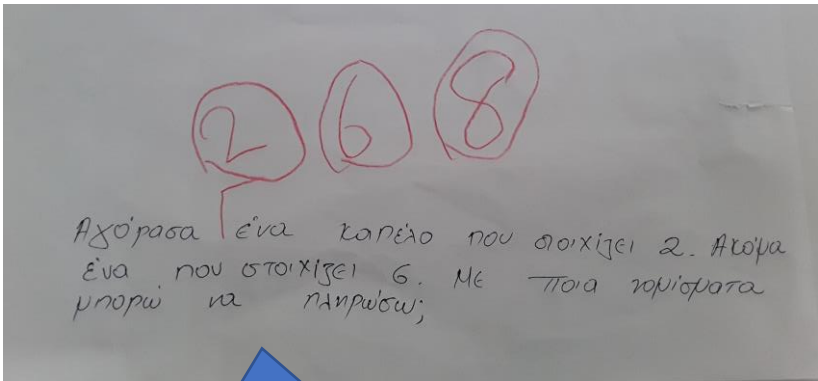 2 6 8
Αγόρασα ένα καπέλο που στοιχίζει 2. Ακόμα
ένα που στοιχίζει 6. Με ποια νομίσματα
μπορώ να πληρώσω;